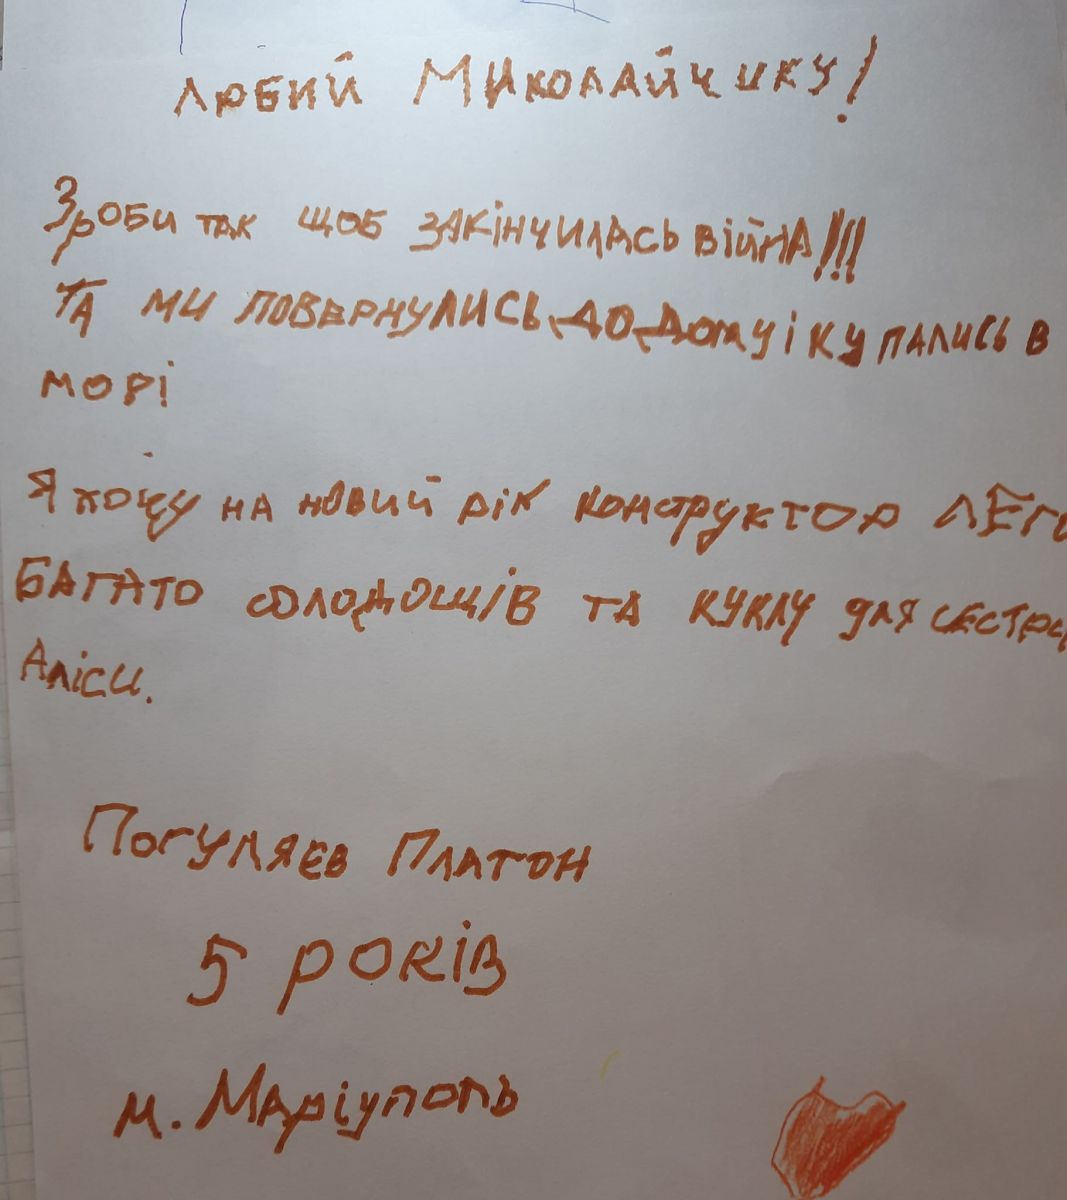 Любий Миколайчику!
Зроби так щоб закінчилась війна!!!
Та ми повернулись додому і купались в
морі
Я хочу на новий рік конструктор ЛЕГО
багато солодощів та куклу для сестри
Аліси.
Погуляєв Платон
5 років
м. Маріуполь